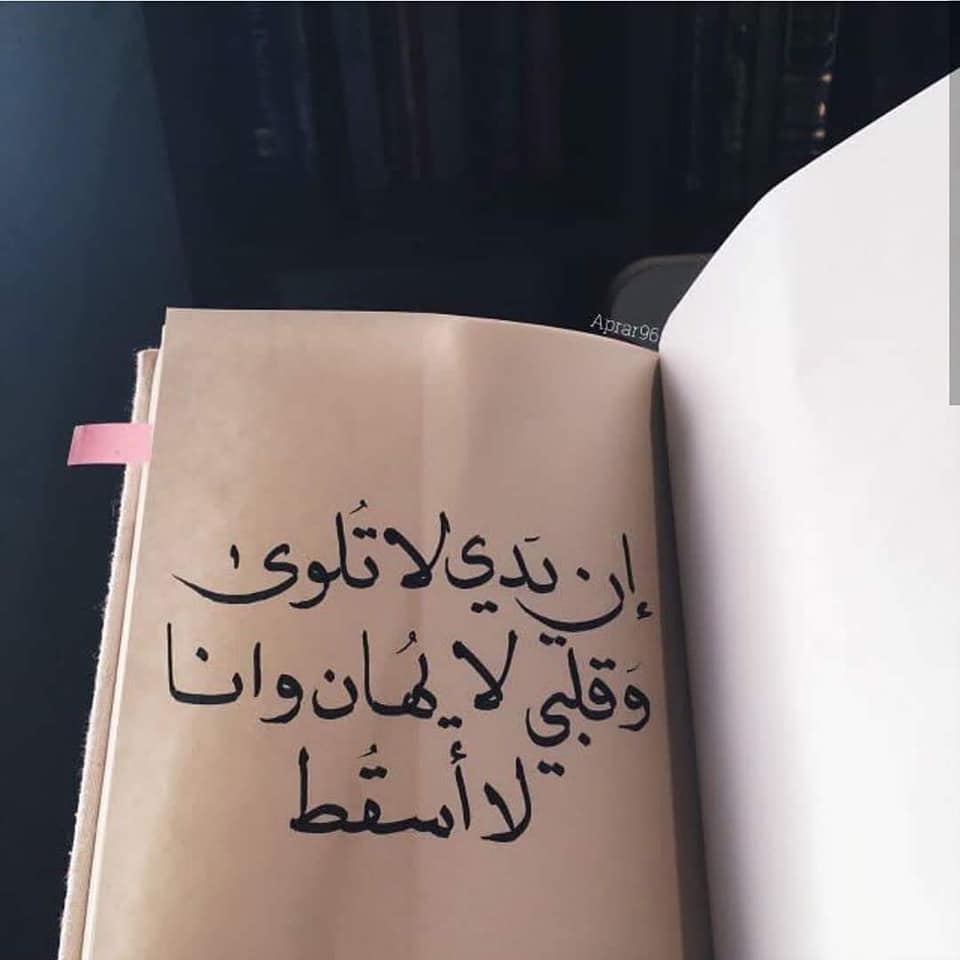 Aprar96
إن يَدي لا تُلوى
وَقلبي لا يُهان وانا
لا أسقُط